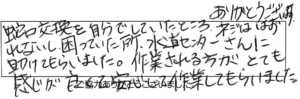 ありがとうございます
蛇口交換を自分でしていたところ、ネジがはず
れないし困っていた所、水道センターさんに
助けてもらいました。作業される方が、とても
感じが良く安心して作業してもらいました。